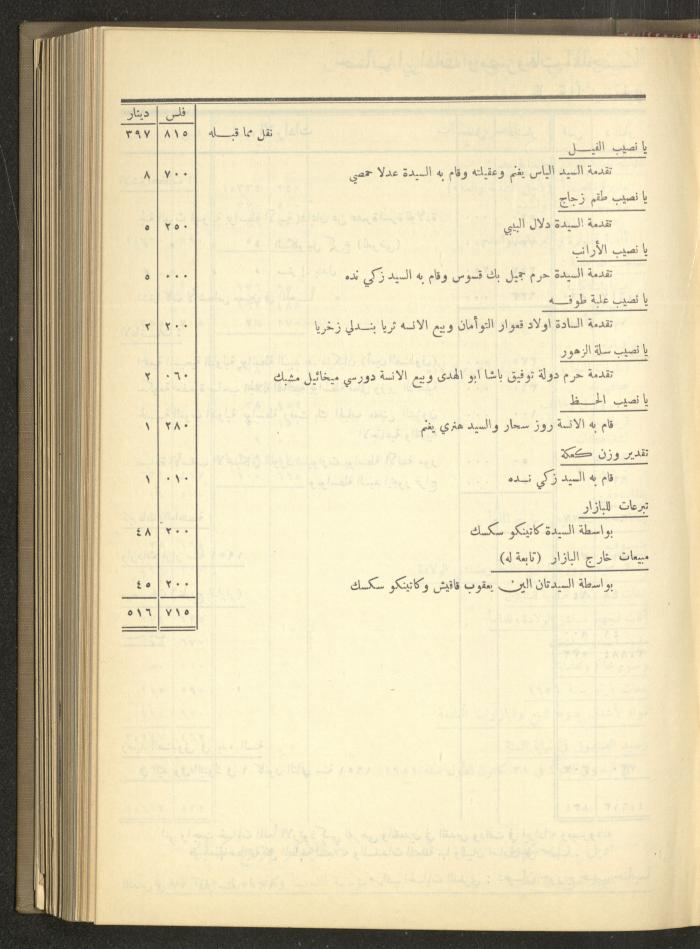 دينار فلس
نقل مما قبله ٨١٥ ٣٩٧
يا نصيب الفيل
تقدمة السيد الياس يغنم وعقيلته وقام به السيدة عدلا حمصي ٧٠٠ ٨
يا نصيب طقم زجاج
تقدمة السيدة دلال البيبي ٢٥٠ ٥
يا نصيب الأرانب
تقدمة السيدة حرم جميل بك قسوس وقام به السيد زكي نده ٠٠٠ ٥
يا نصيب علبة طوفه
تقدمة السادة اولاد قعوار التوأمان وبيع الانسه ثريا بندلي زخريا ٢٠٠ ٢
يا نصيب سلة الزهور
تقدمة حرم دولة توفيق باشا ابو الهدى وبيع الانسة دورسي ميخائيل مشبك ٠٦٠ ٢
يا نصيب الحظ
قام به الانسة روز سحار والسيد هنري يغنم ٢٨٠ ١
تقدير وزن كعكة
قام به السيد زكي نده ٠١٠ ١
تبرعات للبازار
بواسطة السيدة كاتينكو سكسك ٢٠٠ ٤٨
مبيعات خارج البازار (تابعة له)
بواسطة السيدتان الين يعقوب قاقيش وكاتينكو سكسك ٢٠٠ ٤٥
٧١٥ ٥١٦